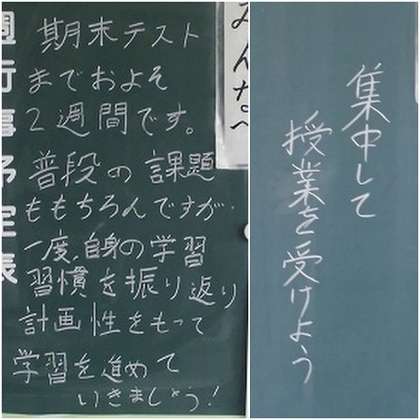 週行事予定表
みんなへ
期末テスト
までおよそ
2週間です。
普段の課題
ももちろんですが、
一度、自身の学習
習慣を振り返り
計画性をもって
学習を進めて
いきましょう!
集中して
授業を受けよう